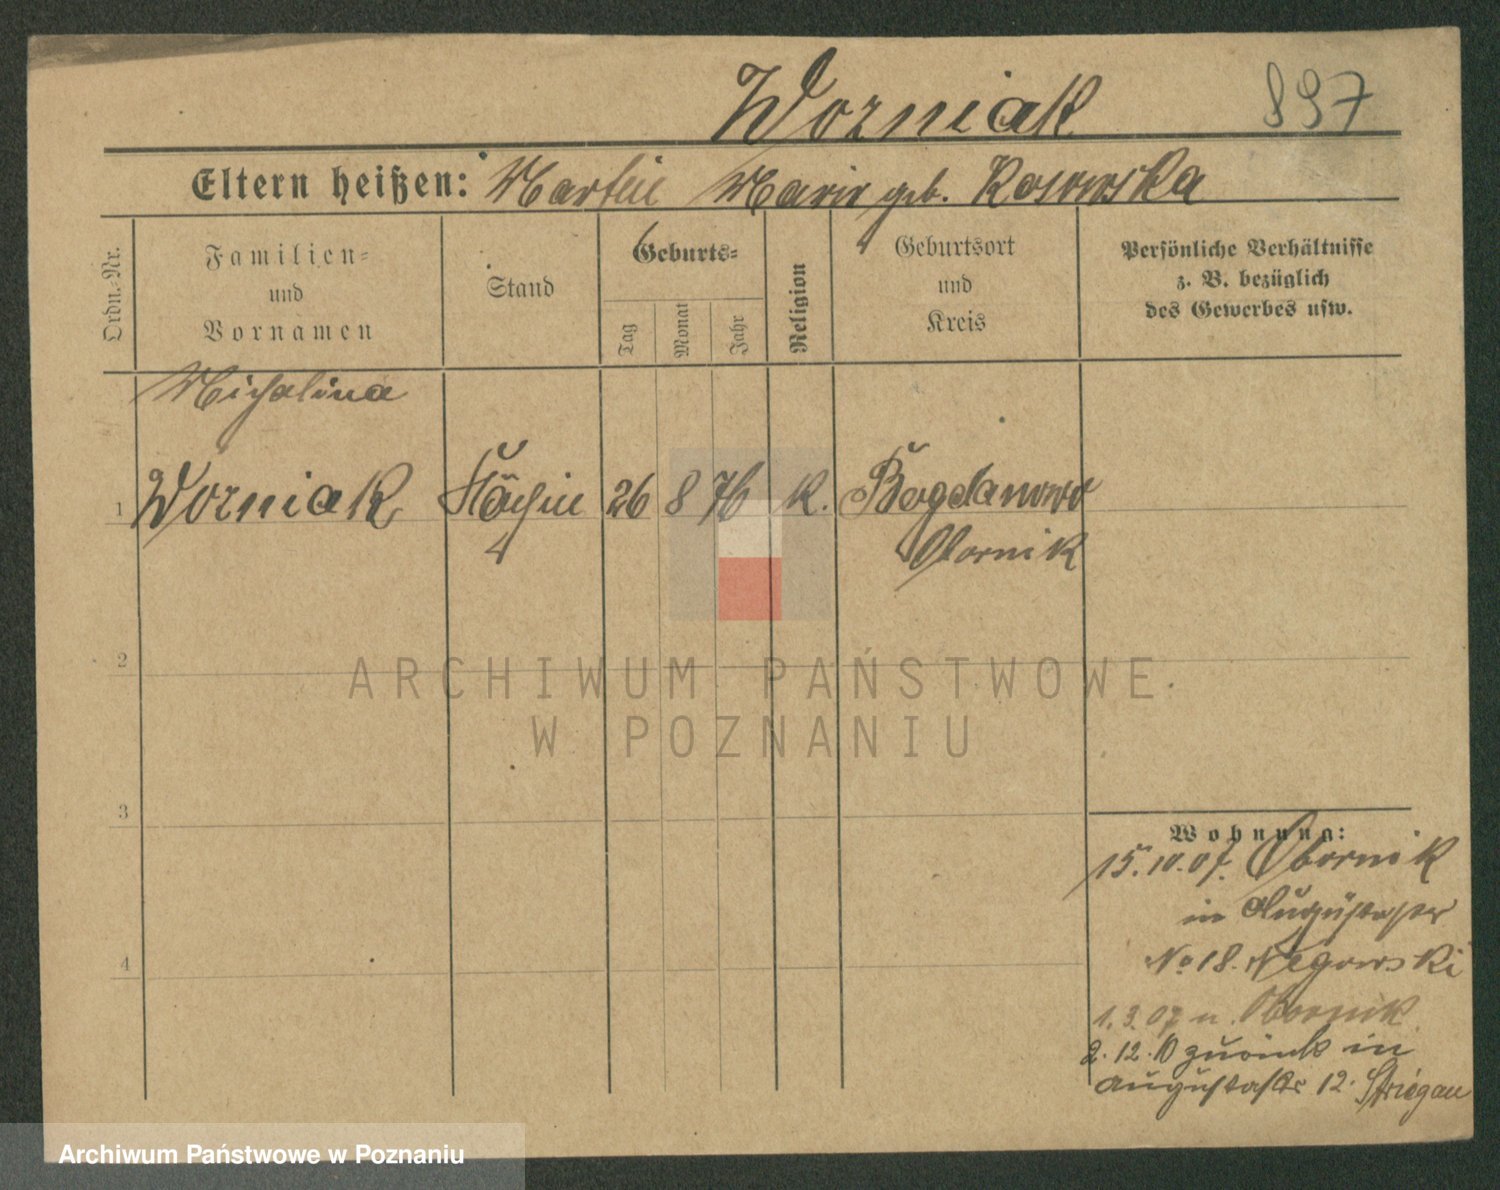 Worniak 897
Eltern heißen: Martin Marie geb. Kosowska
Ordn.-Nr.
Familien-
und
Vornamen
Stand
Geburts-
Tag
Monat
Jahr
Religion
Geburtsort
und
Kreis
Persönliche Verhältnisse
z. B. bezüglich
des Gewerbes usw.
Michalina
1 Worniak Köchin 26 8 76 K. Bogdanowo
Obornik
2
ARCHIWUM PAŃSTWOWE
W POZNANIU
3
Wohnung:
15.10.07. Obornik
in Augustastr
No 18.
4
1.3.07 n. Obornik
2.12.10 zurück in
Augustastr 12.
Archiwum Państwowe w Poznaniu